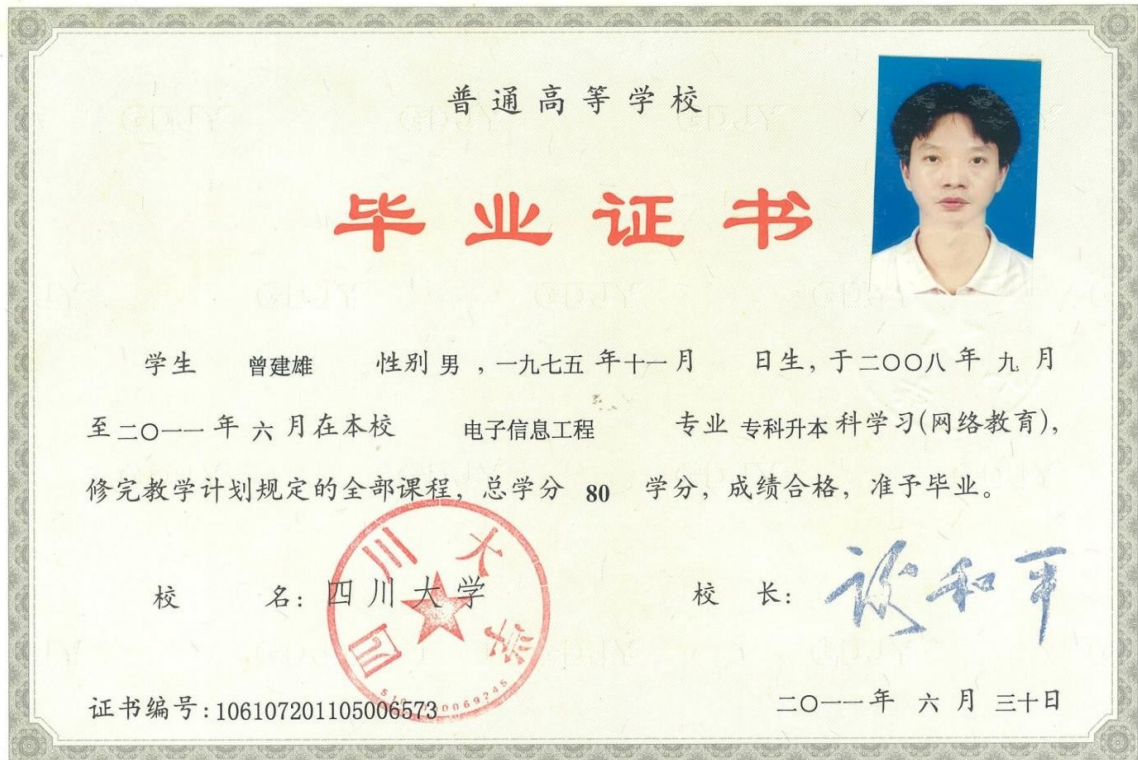 普通高等学校
毕业证书
学生 曾建雄 性别 男 ，一九七五 年 十一 月 日生，于 二〇〇八 年 九 月
至 二〇一一 年 六 月在本校 电子信息工程 专业 专科升本 科学习(网络教育)，
修完教学计划规定的全部课程，总学分 80 学分，成绩合格，准予毕业。
校 名：四川大学
校 长：谢和平
四川大学
证书编号:106107201105006573
二〇一一年 六 月 三十日